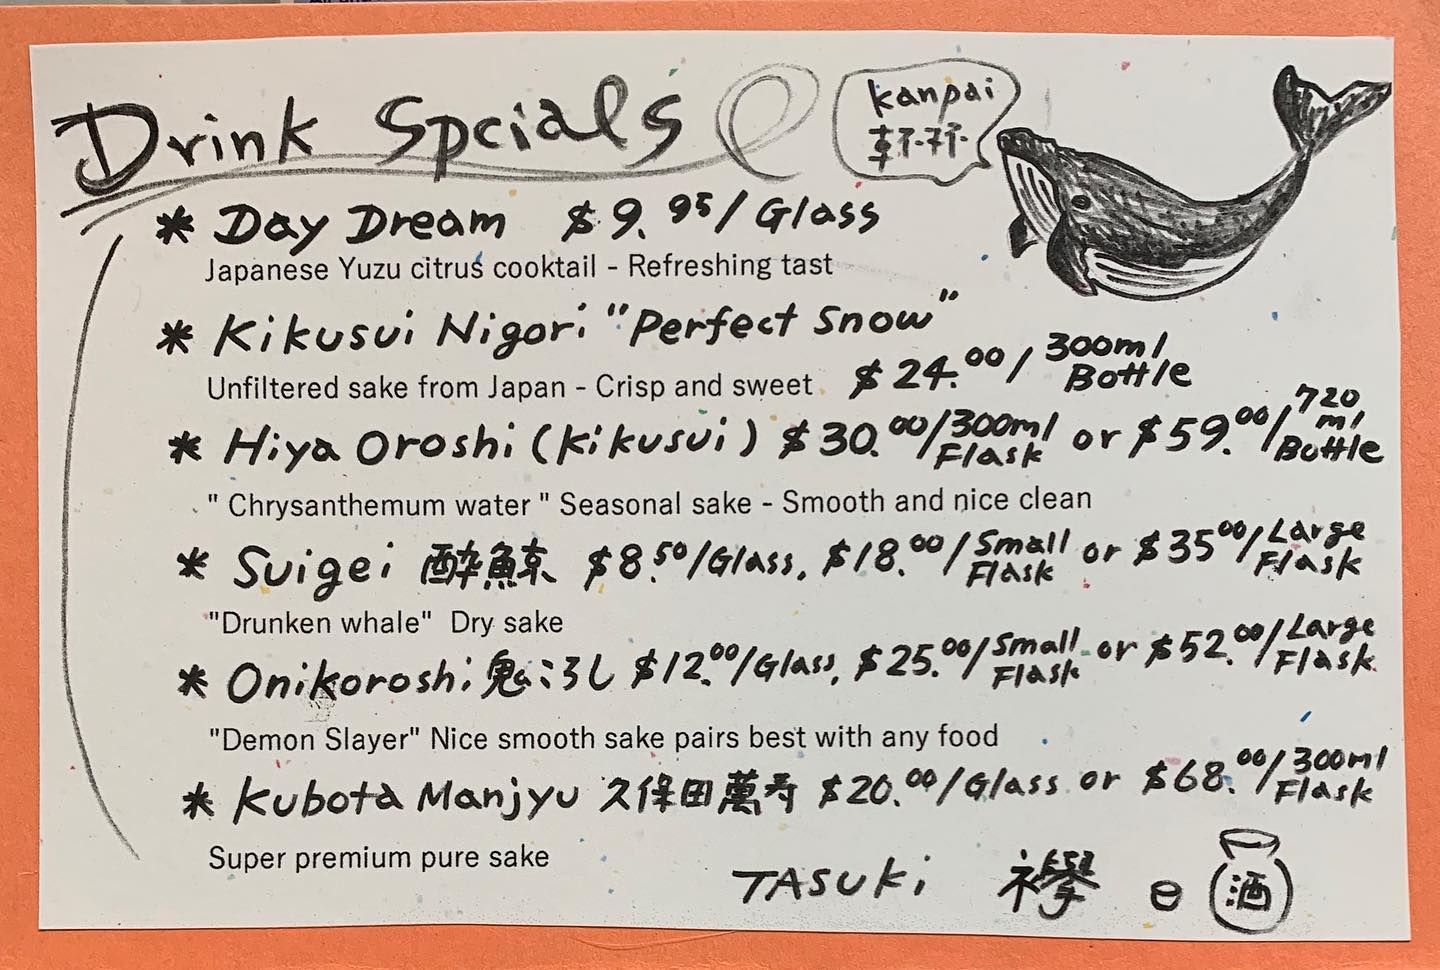 Drink Spcials
kanpai
乾杯
* Day Dream $9.95/Glass
Japanese Yuzu citrus cooktail - Refreshing tast
* Kikusui Nigori "Perfect Snow"
Unfiltered sake from Japan - Crisp and sweet $24.00/300ml Bottle
* Hiya Oroshi (Kikusui) $30.00/300ml Flask or $59.00/720 ml Bottle
" Chrysanthemum water " Seasonal sake - Smooth and nice clean
* Suigei 酔鯨 $8.50/Glass, $18.00/Small Flask or $35.00/Large Flask
"Drunken whale" Dry sake
* Onikoroshi 鬼ころし $12.00/Glass, $25.00/Small Flask or $52.00/Large Flask
"Demon Slayer" Nice smooth sake pairs best with any food
* Kubota Manjyu 久保田萬寿 $20.00/Glass or $68.00/300ml Flask
Super premium pure sake
TASUKi 襷
酒